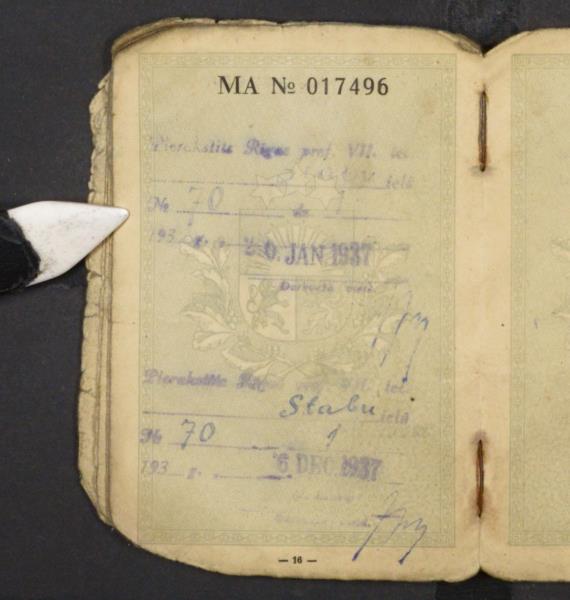 MA № 017496
Pierakstīts Rīgas pref. VII. iec.
ielā
№ 70 dz. 1
193 g. 20. JAN 1937
Pierakstīts Rīgas pref. VII. iec.
Stabu ielā
№ 70 1
193 g. 6 DEC 1937
— 16 —